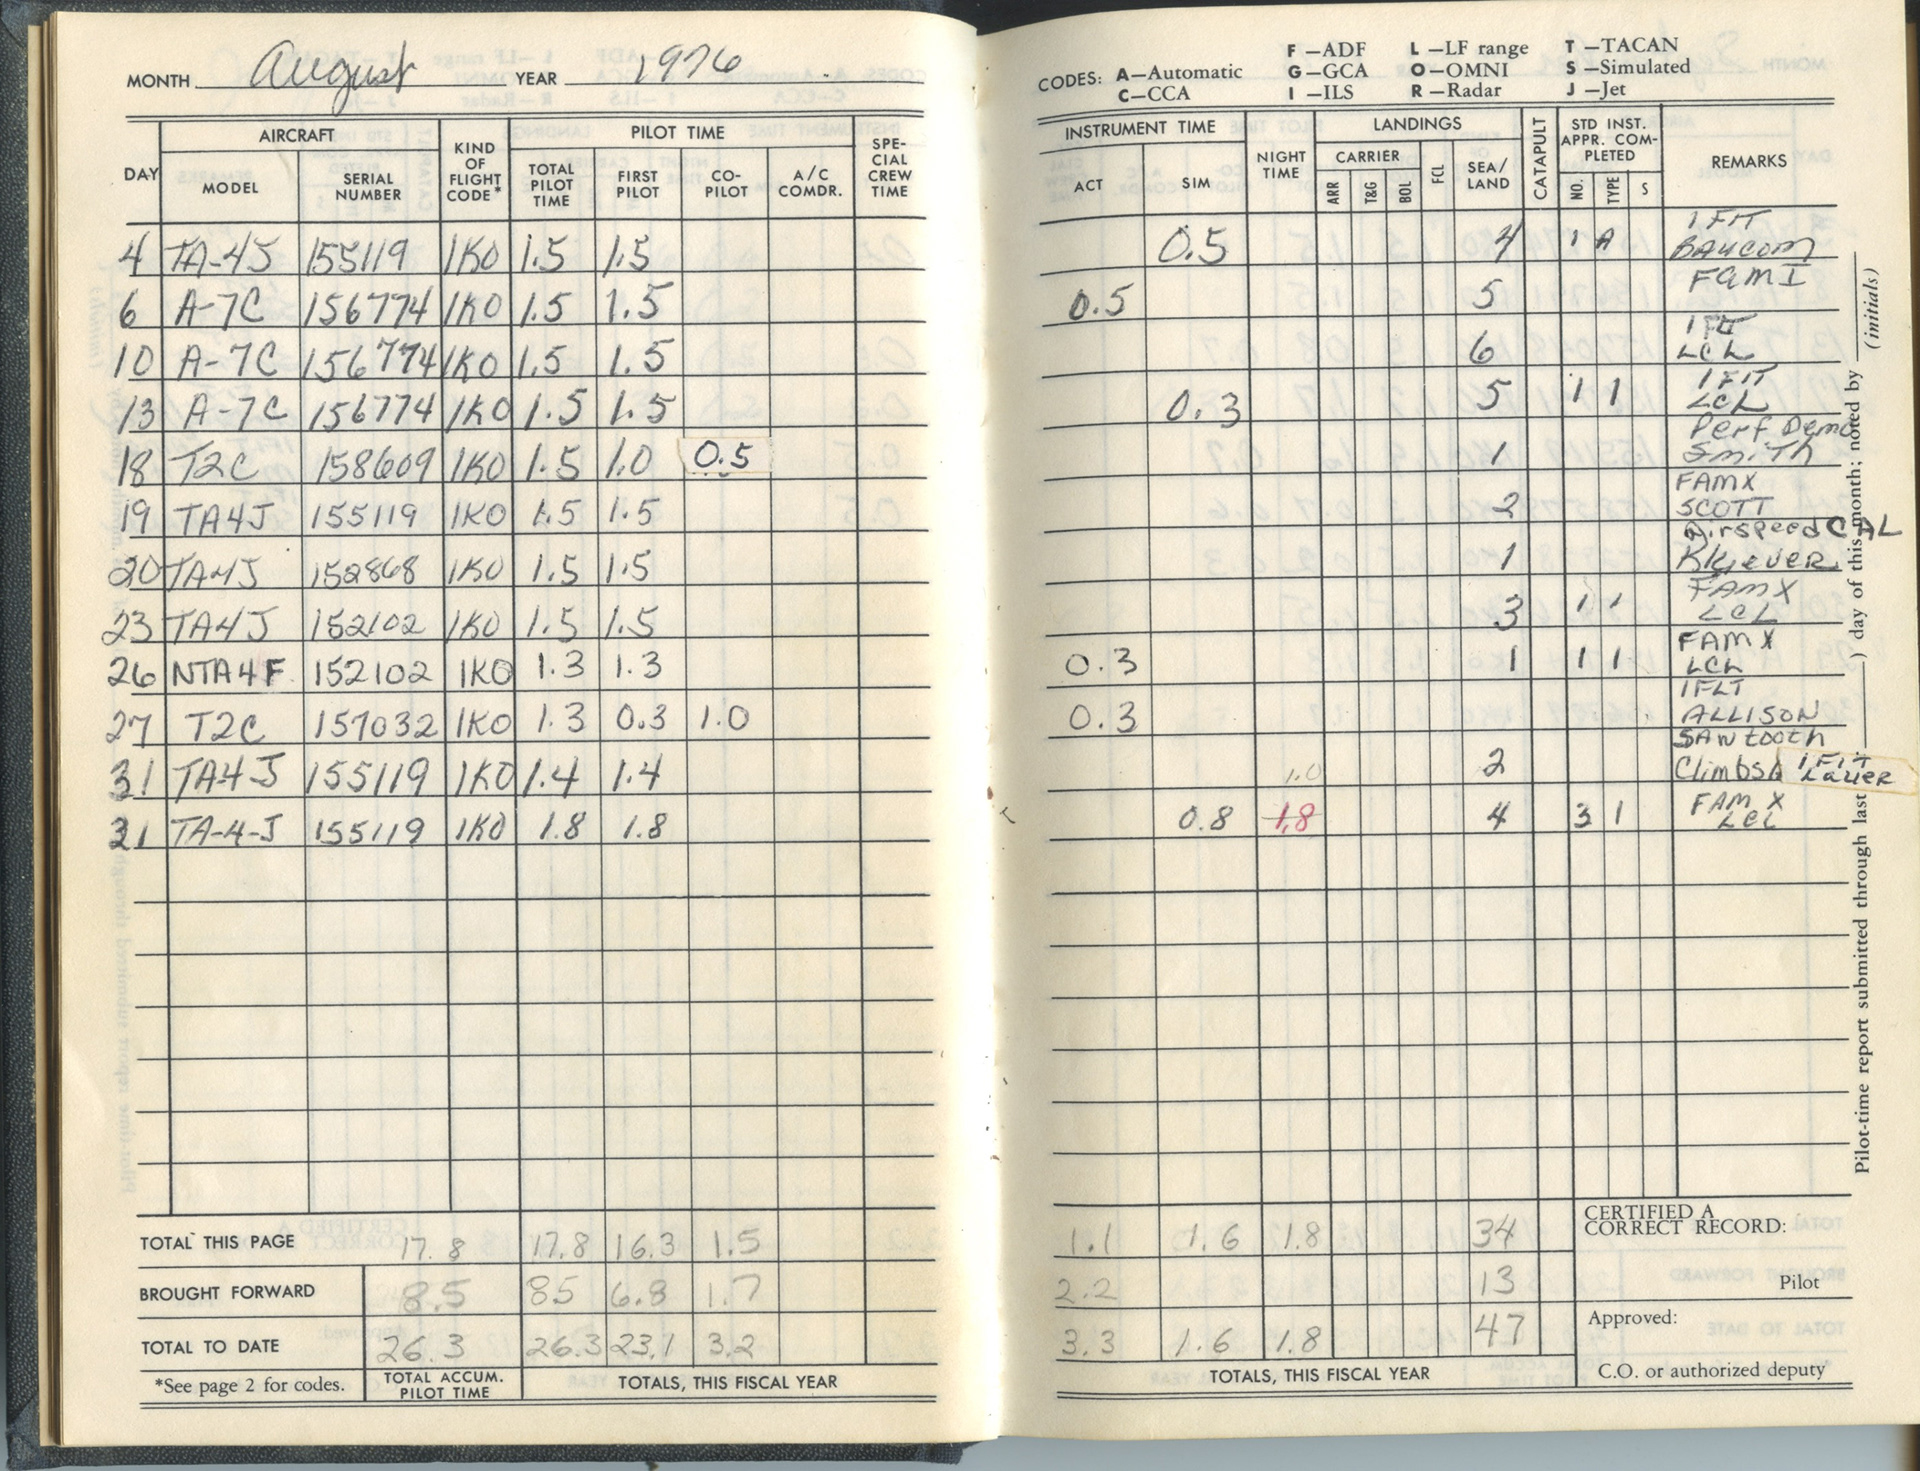 MONTH August YEAR 1976
DAY AIRCRAFT KIND OF FLIGHT CODE* PILOT TIME SPE-CIAL CREW TIME
MODEL SERIAL NUMBER TOTAL PILOT TIME FIRST PILOT CO-PILOT A/C COMDR.
4 TA-4J 155119 1KO 1.5 1.5
6 A-7C 156774 1KO 1.5 1.5
10 A-7C 156774 1KO 1.5 1.5
13 A-7C 156774 1KO 1.5 1.5
18 T2C 158609 1KO 1.5 1.0 0.5
19 TA4J 155119 1KO 1.5 1.5
20 TA4J 152868 1KO 1.5 1.5
23 TA4J 152102 1KO 1.5 1.5
26 NTA4F 152102 1KO 1.3 1.3
27 T2C 157032 1KO 1.3 0.3 1.0
31 TA4J 155119 1KO 1.4 1.4
31 TA-4-J 155119 1KO 1.8 1.8
TOTAL THIS PAGE 17.8 17.8 16.3 1.5
BROUGHT FORWARD 8.5 8.5 6.8 1.7
TOTAL TO DATE 26.3 26.3 23.1 3.2
*See page 2 for codes. TOTAL ACCUM. PILOT TIME TOTALS, THIS FISCAL YEAR
CODES: A—Automatic F—ADF L—LF range T—TACAN
G—GCA O—OMNI S—Simulated
C—CCA I—ILS R—Radar J—Jet
INSTRUMENT TIME NIGHT TIME LANDINGS CATAPULT STD INST. APPR. COM-PLETED REMARKS
ACT SIM CARRIER ARR T&G BOL FCL SEA/LAND NO. TYPE S
0.5 4 1 A 1 FIT
BAUCOM
0.5 5 FAM I
6 1 FIT
LCL
0.3 5 1 1 1 FIT
LCL
1 Perf Demo
Smith
2 FAMX
SCOTT
1 Airspeed CAL
Klever
3 1 1 FAMX
LCL
0.3 1 1 1 FAM X
LCL
0.3 1 FLT
ALLISON
1.0 2 SAWtooth
Climbs 1 FIT
Lauer
0.8 1.8 4 3 1 FAM X
LCL
1.1 1.6 1.8 34
2.2 13
3.3 1.6 1.8 47
TOTALS, THIS FISCAL YEAR
CERTIFIED A
CORRECT RECORD:
Pilot
Approved:
C.O. or authorized deputy
Pilot-time report submitted through last ( ) day of this month; noted by (initials)